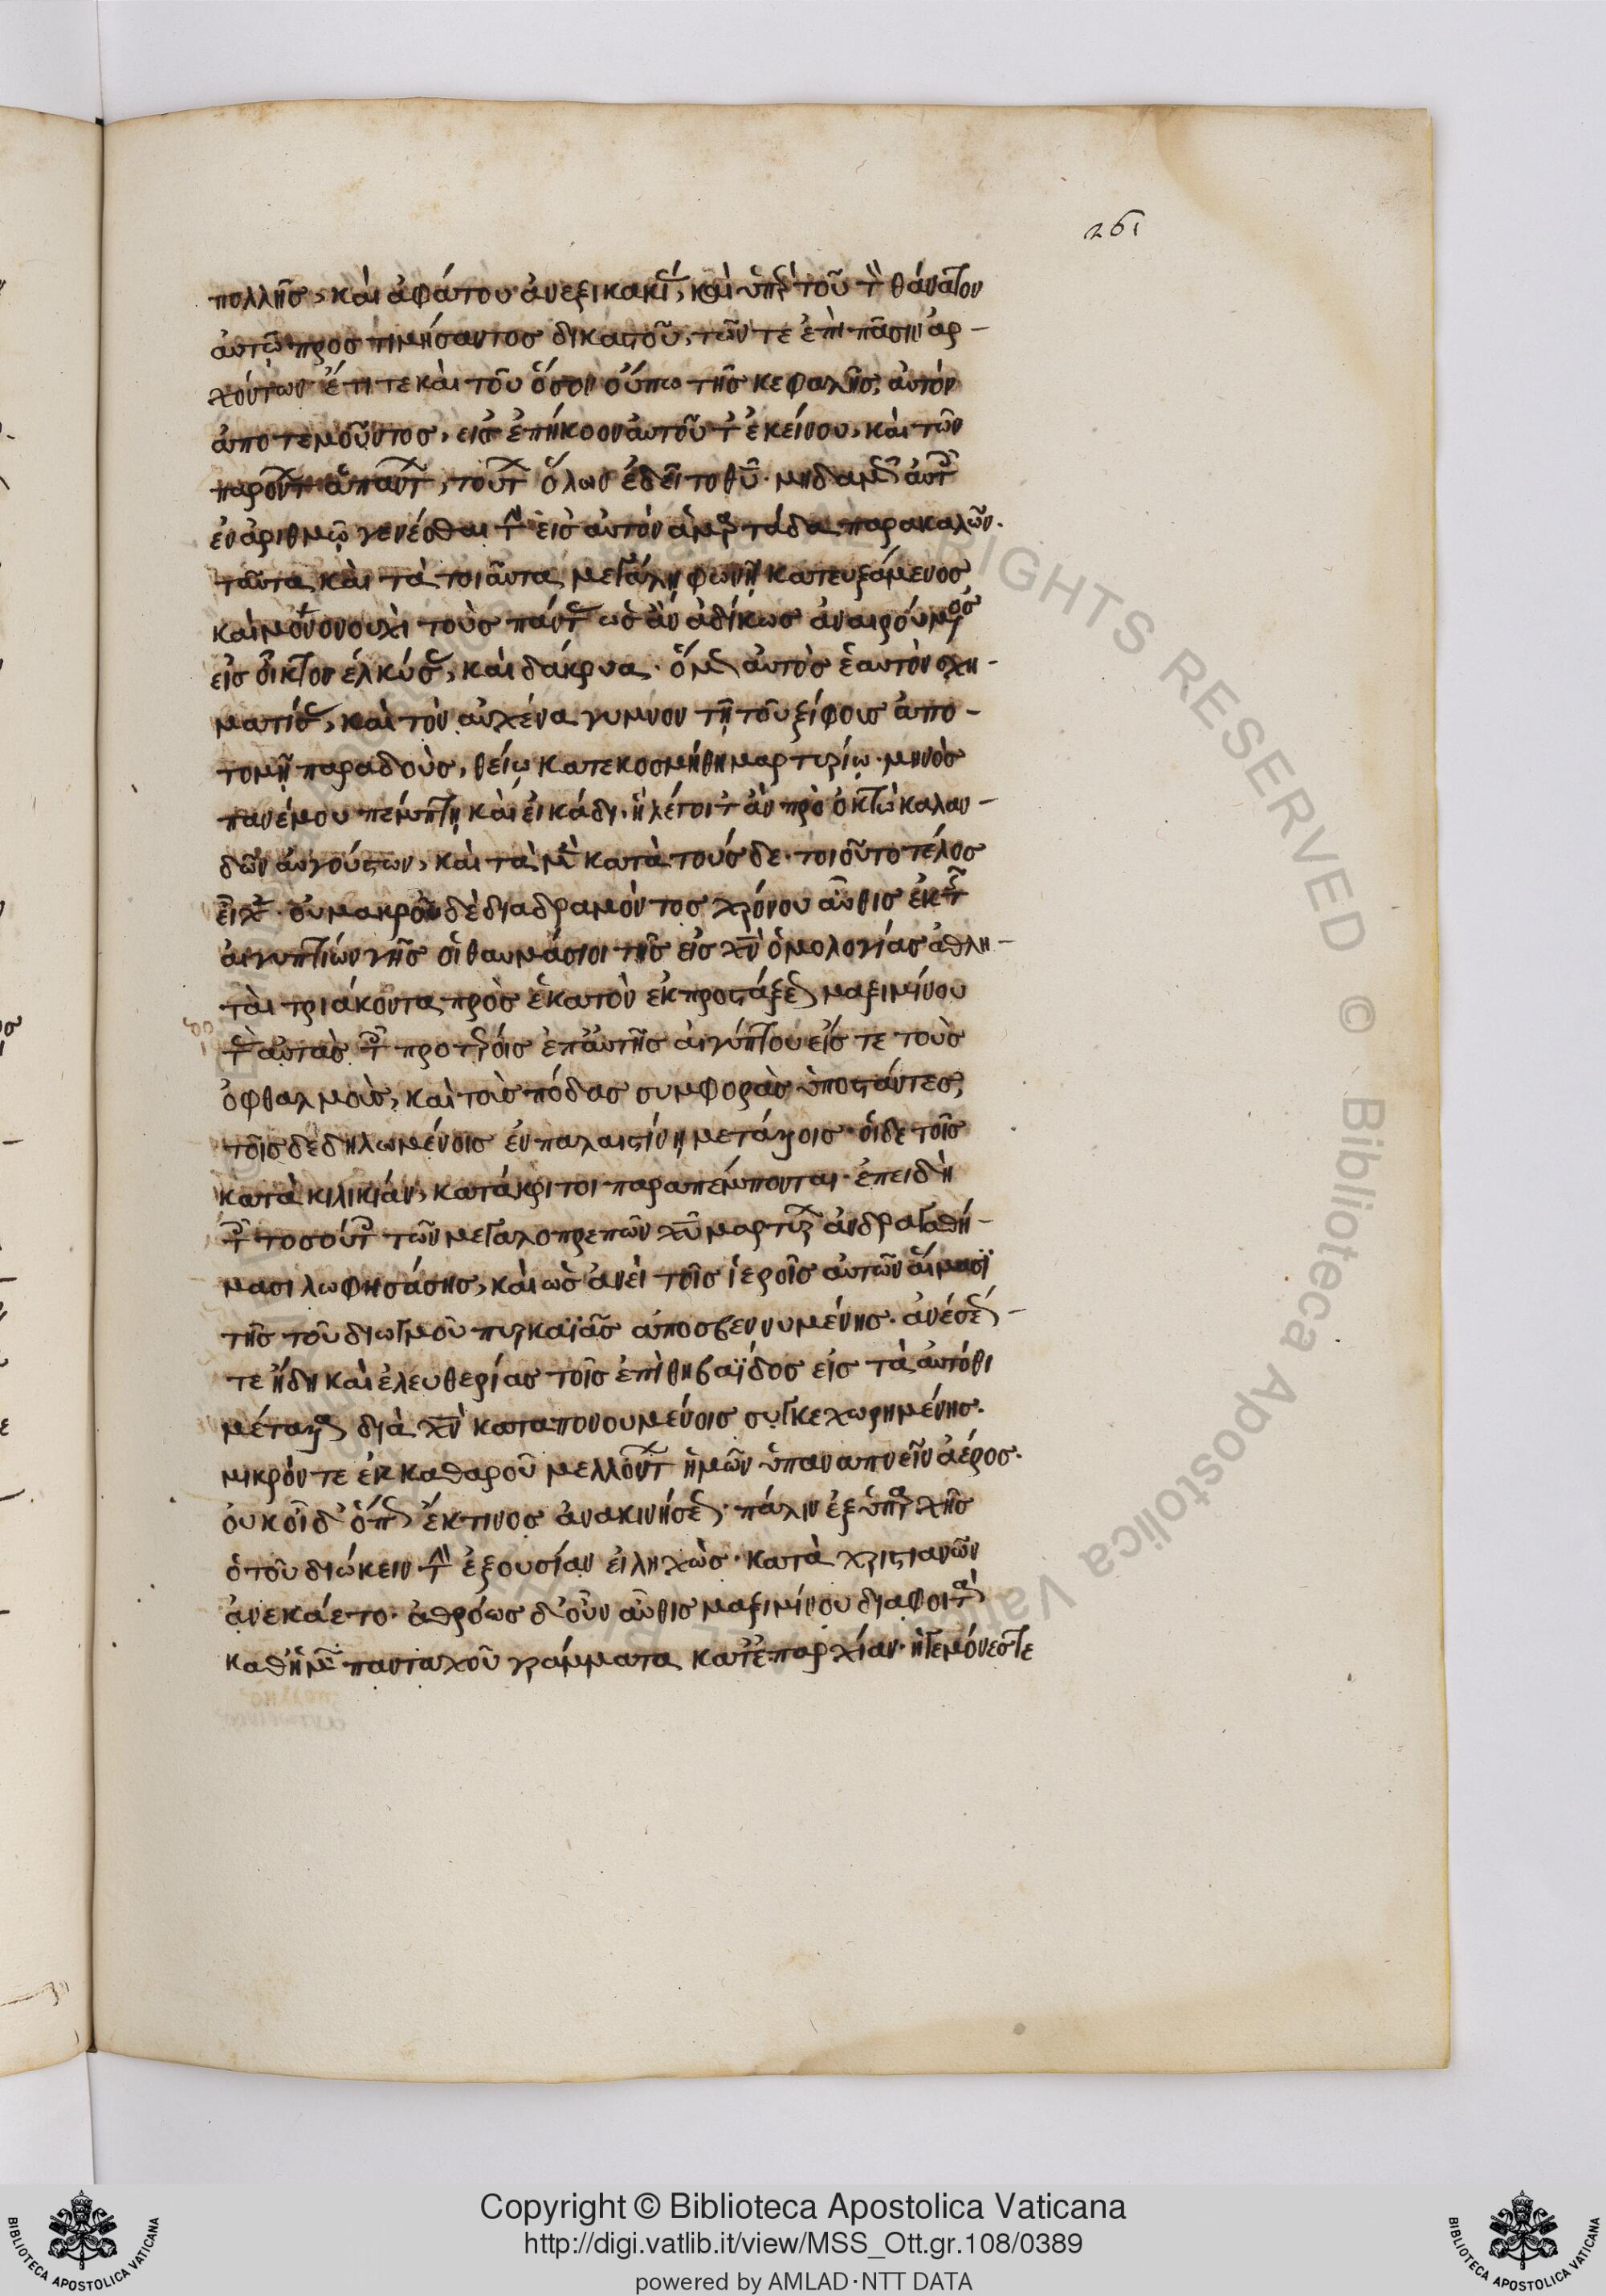 261
πολλῆς, καὶ ἀφάτου ἀνεξικακί, καὶ ὑπὲρ τοῦ τὸν θάνατον
αὐτῷ προστιμήσαντος δικαστοῦ, τῶν τε ἐπὶ πᾶσιν ἀρ-
χόντων ἔτι τε καὶ τοῦ ὅσον οὔπω τῆς κεφαλῆς, αὐτὸν
ἀποτεμοῦντος, εἰς ἐπήκοον αὐτοῦ τε ἐκείνου, καὶ τῶν
παρόντων ἁπάντων, τοῦ τῶν ὅλων ἐδεῖτο θῦ. μηδαμῶς αὐτοῖς
ἐν ἀριθμῷ γενέσθαι τὴν εἰς αὐτὸν ἁμαρτάδα παρακαλῶν.
ταῦτα καὶ τὰ τοιαῦτα μεγάλη φωνῆ κατευξάμενος
καὶ μονονουχὶ τοὺς πάντας ὡς ἂν ἀδίκως ἀναιρούμενος
εἰς οἶκτον ἑλκύσας, καὶ δάκρυα. ὅμως αὐτὸς ἑαυτὸν σχη-
ματίσας, καὶ τὸν αὐχένα γυμνὸν τῆ τοῦ ξίφους ἀπο-
τομῆ παραδοὺς, θείῳ κατεκοσμήθη μαρτυρίῳ. μηνὸς
πανέμου πέμπτη καὶ εἰκάδι. ἣ λέγοιτ ἂν πρὸ ὀκτὼ καλαν-
δῶν αὐγούστων, καὶ τὰ μὲν κατὰ τούσδε. τοιοῦτο τέλος
εἶχε. οὐ μακροῦ δὲ διαδραμόντος χρόνου αὖθις ἐκ τῆς
αἰγυπτίων γῆς οἱ θαυμάσιοι τῆς εἰς χν ὁμολογίας ἀθλη-
ταὶ τριάκοντα πρὸς ἑκατὸν ἐκ προστάξεως μαξιμίνου
τὰς αὐτὰς τοῖς προτέροις ἐπ αὐτῆς αἰγύπτου εἴς τε τοὺς
ὀφθαλμοὺς, καὶ τοὺς πόδας συμφορὰς ὑποστάντες,
τοῖς δεδηλωμένοις ἐν παλαιστίνη μετάλλοις. οἱ δὲ τοῖς
κατὰ κιλικίαν, κατάκριτοι παραπέμπονται. ἐπειδὴ
τοῖς τοσούτοις τῶν μεγαλοπρεπῶν χῦ μαρτύρων ἀνδραγαθή-
μασι λωφησάσης, καὶ ὡς ἀνεὶ τοῖς ἱεροῖς αὐτῶν αἵμασϊ
τῆς τοῦ διωγμοῦ πυρκαϊᾶς ἀποσβεννυμένης. ἀνέσεώς
τε ἤδη καὶ ἐλευθερίας τοῖς ἐπὶ θηβαΐδος εἰς τὰ αὐτόθι
μέταλλα διὰ χν καταπονουμένοις συγκεχωρημένης.
μικρόν τε ἐκ καθαροῦ μελλόντων ἡμῶν ὑπαναπνεῖν ἀέρος.
οὐκ οἶδ ὅπως ἔκ τινος ἀνακινήσεως. πάλιν ἐξ ὑπαρχῆς
ὁ τοῦ διώκειν τὴν ἐξουσίαν εἰληχὼς. κατὰ χριστιανῶν
ἀνεκάετο. ἀθρόως δ οὖν αὖθις μαξιμίνου διαφοιτᾶ
καθ ἡμῶν πανταχοῦ γράμματα κατ ἐπαρχίαν. ἡγεμόνες τε
Copyright © Biblioteca Apostolica Vaticana
http://digi.vatlib.it/view/MSS_Ott.gr.108/0389
powered by AMLAD·NTT DATA